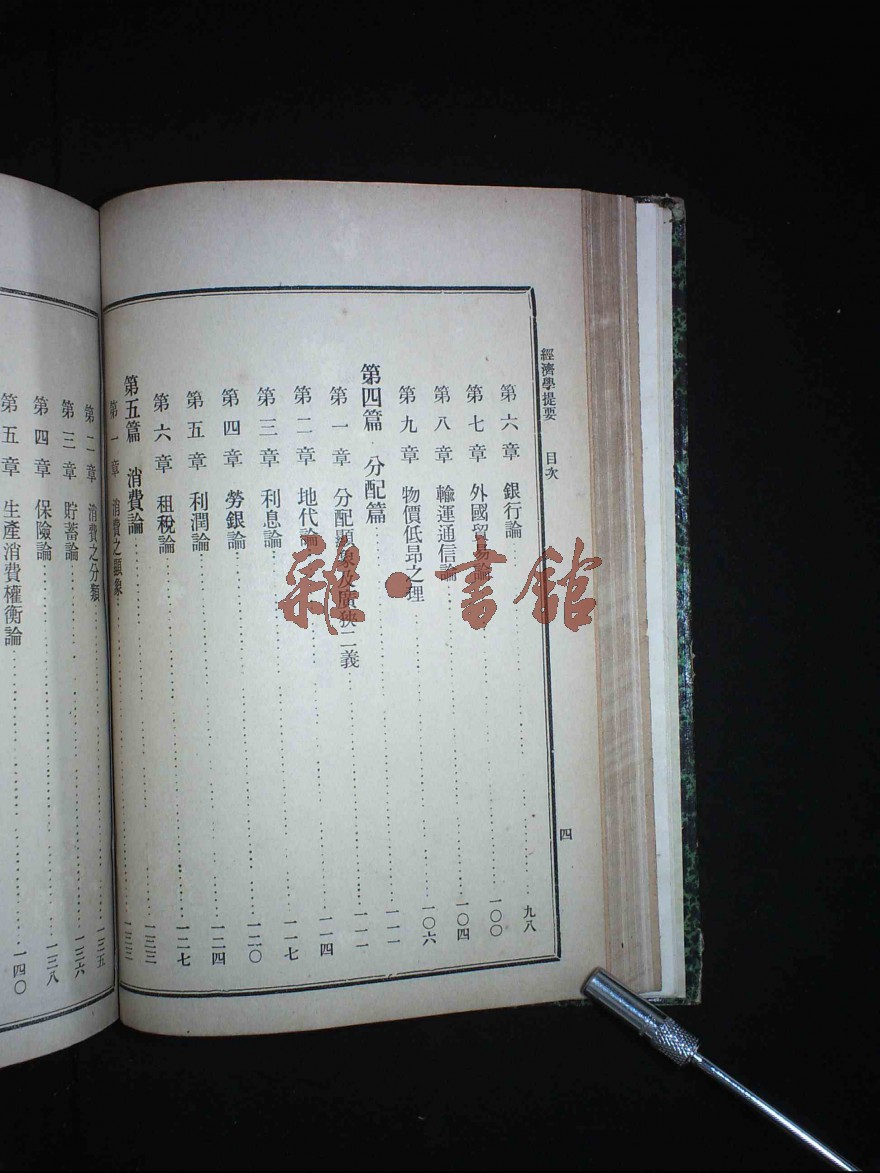 經濟學提要 目次 四
第六章 銀行論 九八
第七章 外國貿易論 一〇〇
第八章 輸運通信論 一〇四
第九章 物價低昂之理 一〇六
第四篇 分配篇 一一一
第一章 分配顯象及廣狹二義 一一一
第二章 地代論 一一四
第三章 利息論 一一七
第四章 勞銀論 一二〇
第五章 利潤論 一二四
第六章 租稅論 一二七
第五篇 消費論 一三三
第一章 消費之顯象 一三三
第二章 消費之分類 一三五
第三章 貯蓄論 一三六
第四章 保險論 一三八
第五章 生產消費權衡論 一四〇
雜·書館